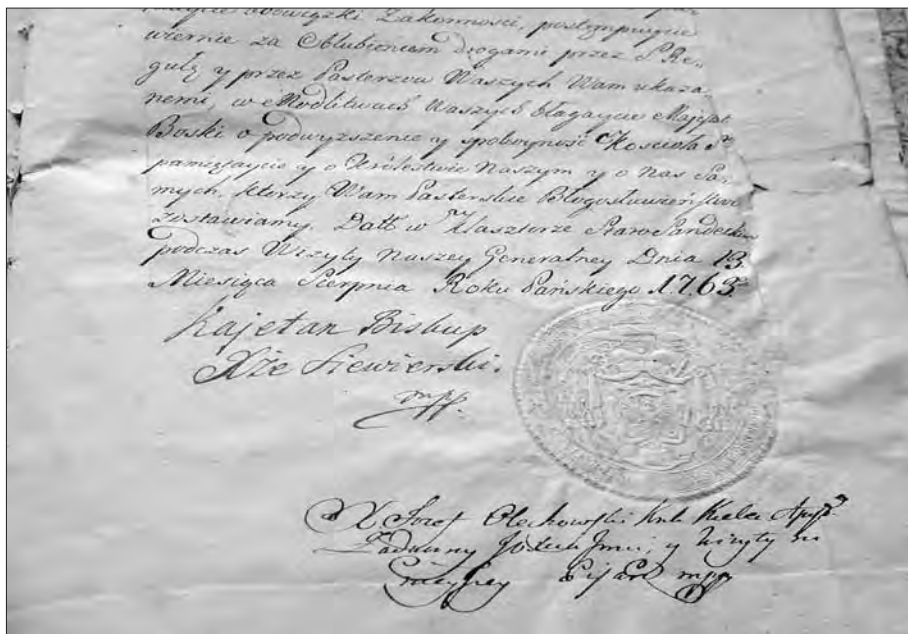 obowiązki Zakonności, postempuycie
wiernie za Oblubieńcem drogami przez S. Re,,
gułę y przez Pasterzow Naszych Wam ukaza,,
nemi, w Modlitwach Waszych błagaycie Majestat
Boski o podwyższenie y spokoyność Kościoła S.
pamiętaycie y o Krolestwie Naszym y o Nas Sa,,
mych, ktorzy Wam Pasterskie Błogosławieństwo
zostawiamy. Datt w Klasztorze Staro Sandeckim
podczas Wizyty Naszey Generalney Dnia 13.
Miesiąca Sierpnia Roku Pańskiego 1763
Kajetan Biskup
Xże Siewierski.
mpp.
X. Jozef Olechowski Knk Kielec
Zadworny y Wizyty
Pisarz mpp